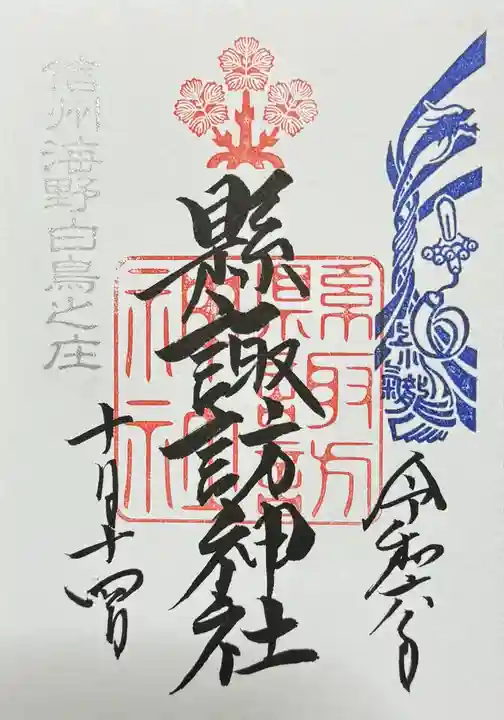 令和六年
縣諏訪神社
縣諏訪神社
十月十四日
信州海野白鳥之庄